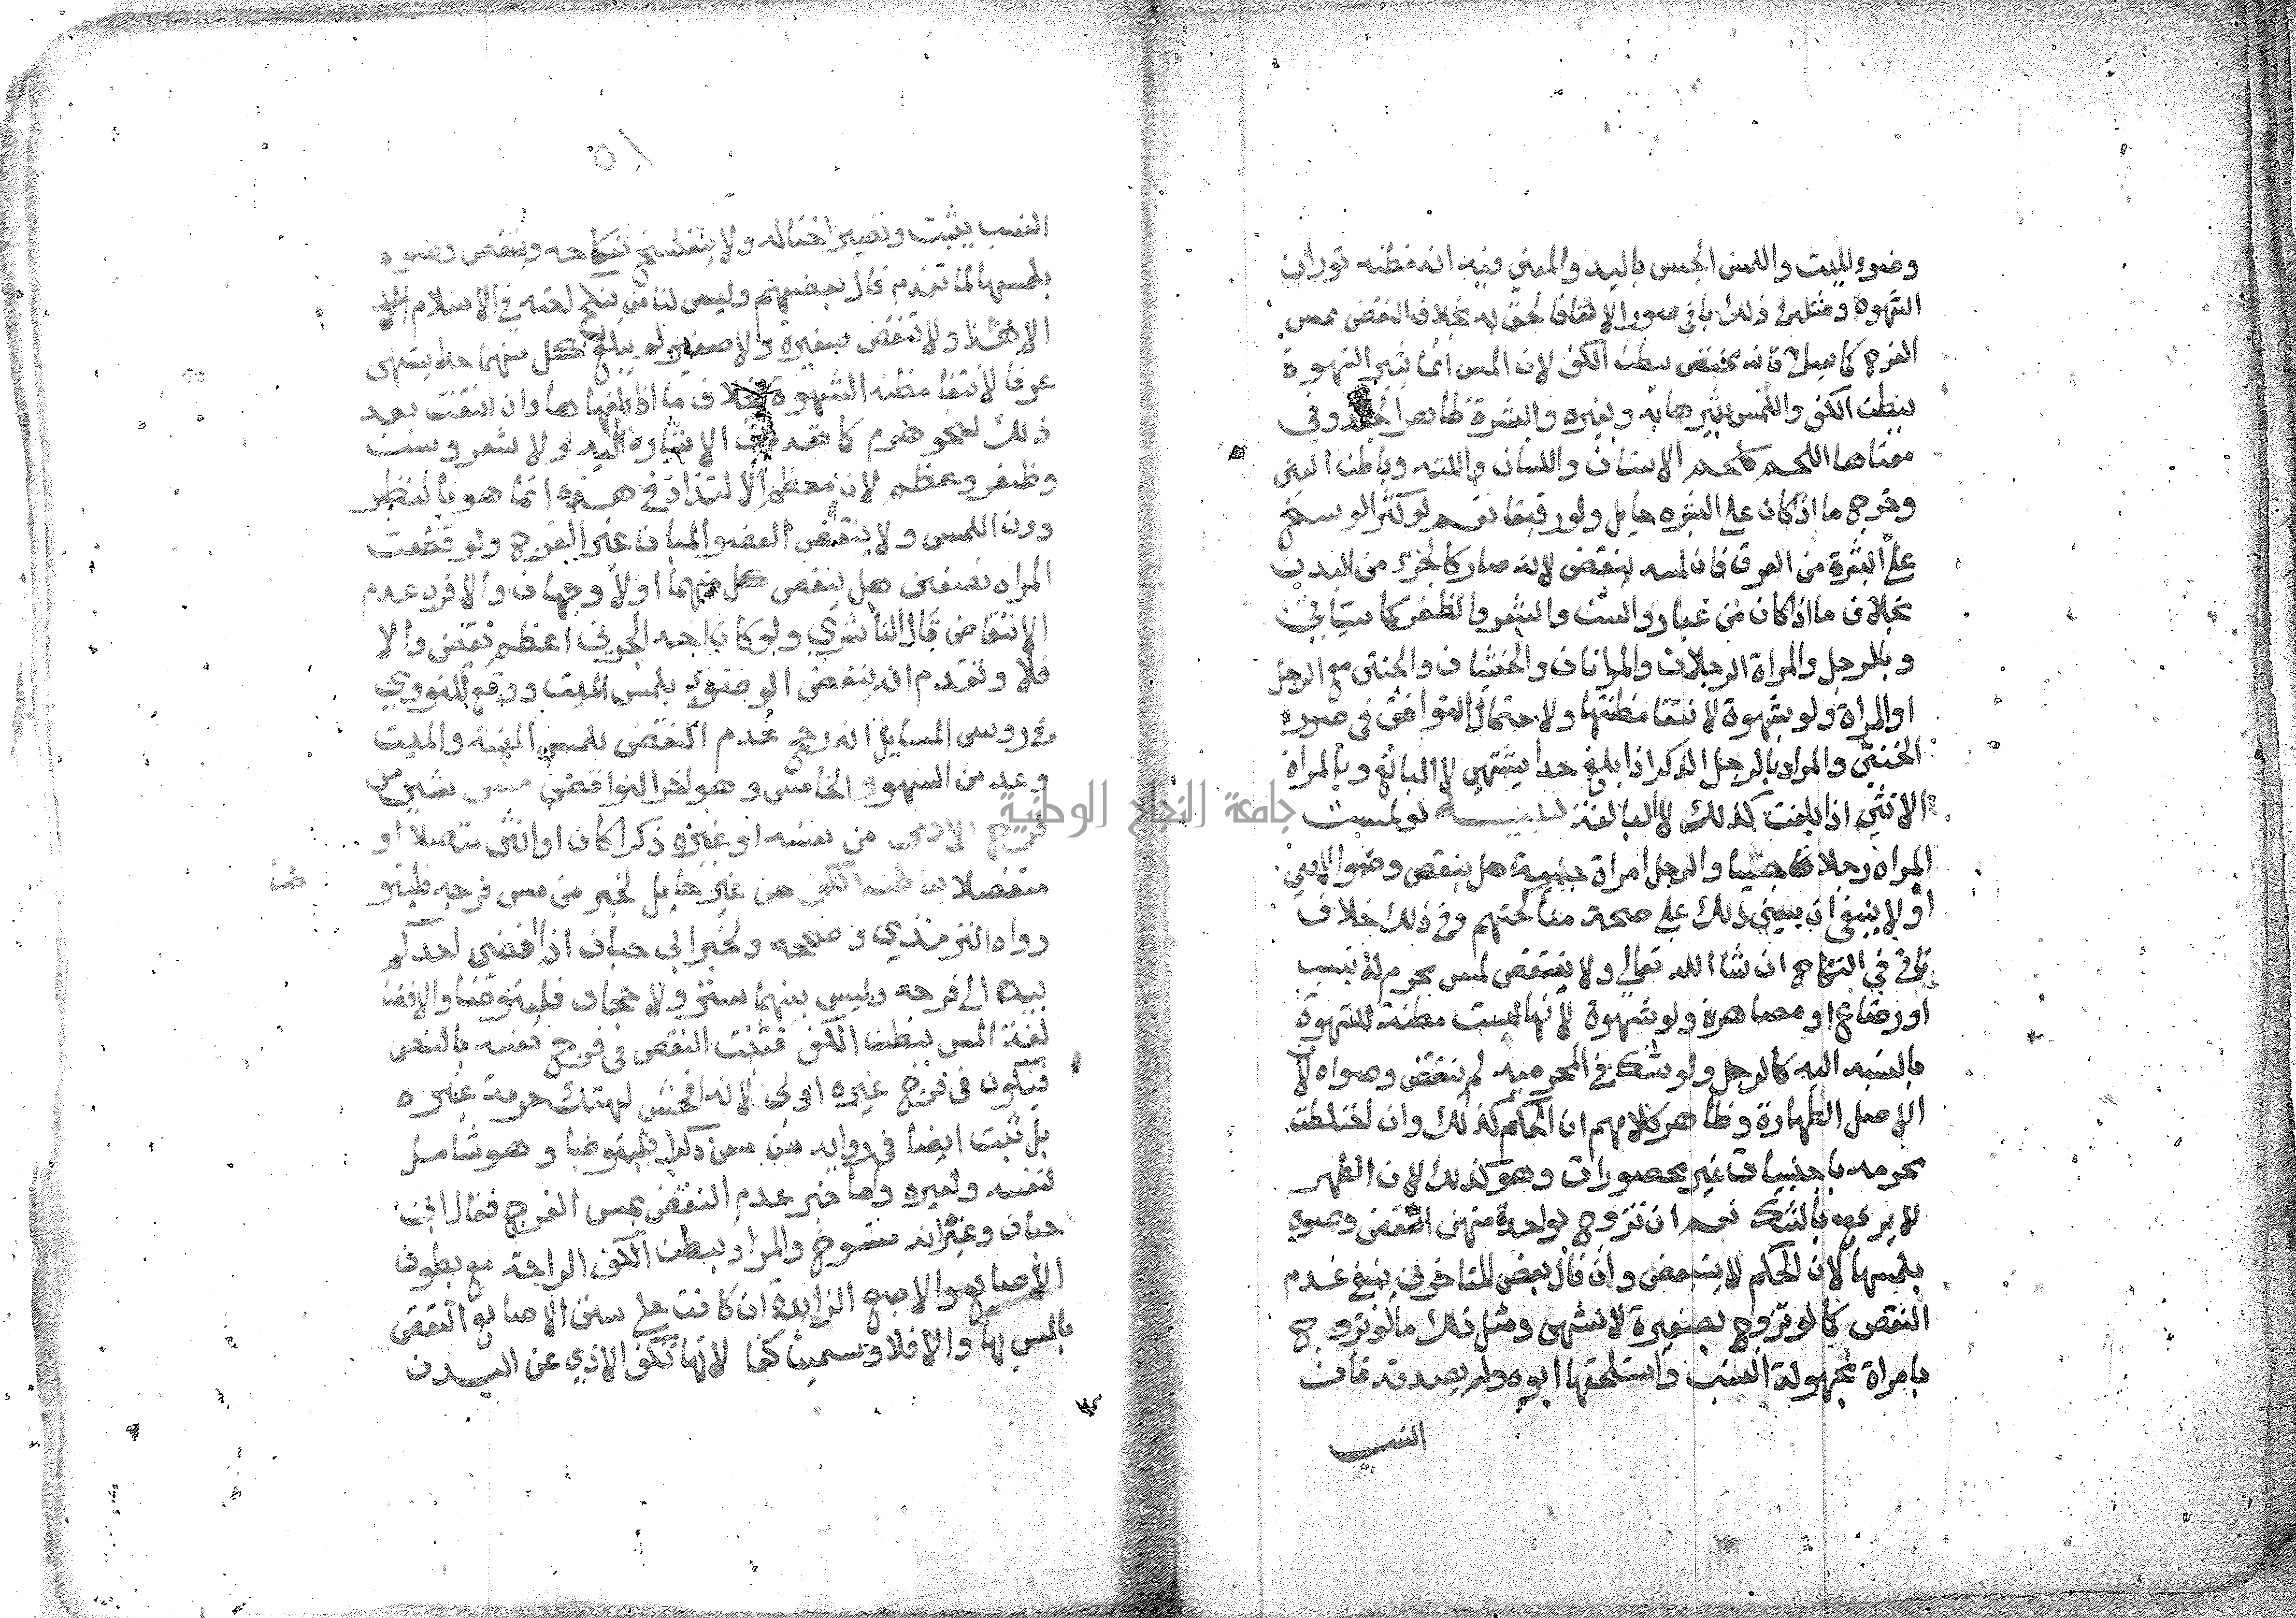 وضوء الميت واللمس الجس باليد والمعني فيه انه مظنه ثوران
الشهوة ومثله في ذلك باقي صور الالتقا فالحق به بخلاف النقض بمس
الفرج كما سيأتي فانه يختص ببطن الكف لان المس انما يثير الشهوة
ببطن الكف واللمس يثيرها به وبغيره والبشرة ظاهر الجلد وفي
معناها اللحم كلحم الاسنان واللسان واللثه وباطن العين
وخرج ما اذا كان علي البشره حايل ولو رقيقا نعم لو كثر الوسخ
علي البشرة من العرق فان لمسه ينقض لانه صار كالجزء من البدن
بخلاف ما اذا كان من غبار والسن والشعر والظفر كما سيأتي
وبالرجل والمراة الرجلان والمراتان والخنثيان والخنثى مع الرجل
او المراة ولو بشهوة لانتفا مظنتها ولاحتمال التوافق في صور
الخنثي والمراد بالرجل الذكر اذا بلغ حدا يشتهي لا البالغ وبالمراة
الانثي اذا بلغت كذلك لا البالغة تنبيه لو لمست
المراه رجلا جنيا والرجل امراة جنيه هل ينقض وضوا الادمي
او لا ينبغي ان يبني ذلك علي صحة مناكحتهم وفي ذلك خلاف
ياتي في النكاح ان شا الله تعالي ولا ينتقض لمس محرم له بنسب
او رضاع او مصاهرة ولو بشهوة لانها ليست مظنة للشهوة
بالنسبه اليه كالرجل ولو شك في المحرميه لم ينتقض وضواه لان
الاصل الطهارة وظاهر كلامهم ان الحكم كذلك وان اختلطت
محرمه باجنبيات غير محصورات وهو كذلك لان الطهر
لا يرفع بالشك نعم ان تزوج بواحدة منهن انتقض وضوه
بلمسها لان الحكم لا يتبعض وان قال بعض المتاخرين ينبغي عدم
النقض كما لو تزوج بصغيرة لا تشتهى ومثل ذلك ما لو تزوج
بامراة مجهولة النسب واستلحقها ابوه ولم يصدقه فان
النسب
٥١
النسب يثبت وتصير اختا له ولا ينفسخ نكاحه وينتقض وضوه
بلمسها لما تقدم قال بعضهم وليس لنا من ينكح اخته في الاسلام
الا هذا ولا تنقض صغيرة ولا صغير لم يبلغ كل منهما حدا يشتهى
عرفا لانتفا مظنه الشهوة بخلاف ما اذا بلغاها وان انتفت بعد
ذلك لنحو هرم كما تقدمت الاشاره اليه ولا شعر وسن
وظفر وعظم لان معظم الالتذاذ في هذه انما هو بالنظر
دون اللمس ولا ينتقض العضو المبان غير الفرج ولو قطعت
المراه نصفين هل ينقض كل منهما او لا وجهان والاقرب عدم
الانتقاض قال الناشري ولو كان احد الجزين اعظم نقض والا
فلا وتقدم انه ينتقض الوضوء بلمس الميت ووقع للنووي
في روس المسايل انه رجح عدم النقض بلمس الميته والميت
وعد من السهو و الخامس وهو اخر النواقض مس شي من
فرج الادمى من نفسه او غيره ذكرا كان او انثى متصلا او
منفصلا بباطن الكف من غير حايل لخبر من مس فرجه فليتو
ضا
رواه الترمذي وصححه ولخبر ابي حبان اذا افضى احدكم
بيده الي فرجه وليس بينهما ستر ولا حجاب فليتوضا والافضا
لغة المس ببطن الكف فثبت النقض في فرج نفسه بالنص
فيكون في فرج غيره اولى لانه افحش لهتك حرمة غيره
بل ثبت ايضا في روايه من مس ذكرا فليتوضا وهو شامل
لنفسه ولغيره واما خبر عدم النقض بمس الفرج فقال ابن
حبان وغيره انه منسوخ والمراد ببطن الكف الراحة مع بطون
الاصابع والاصبع الزايدة ان كانت علي سنن الاصابع انتقض
بالمس بها والا فلا وسميت كفا لانها تكف الاذي عن البدن
جامعة النجاح الوطنية